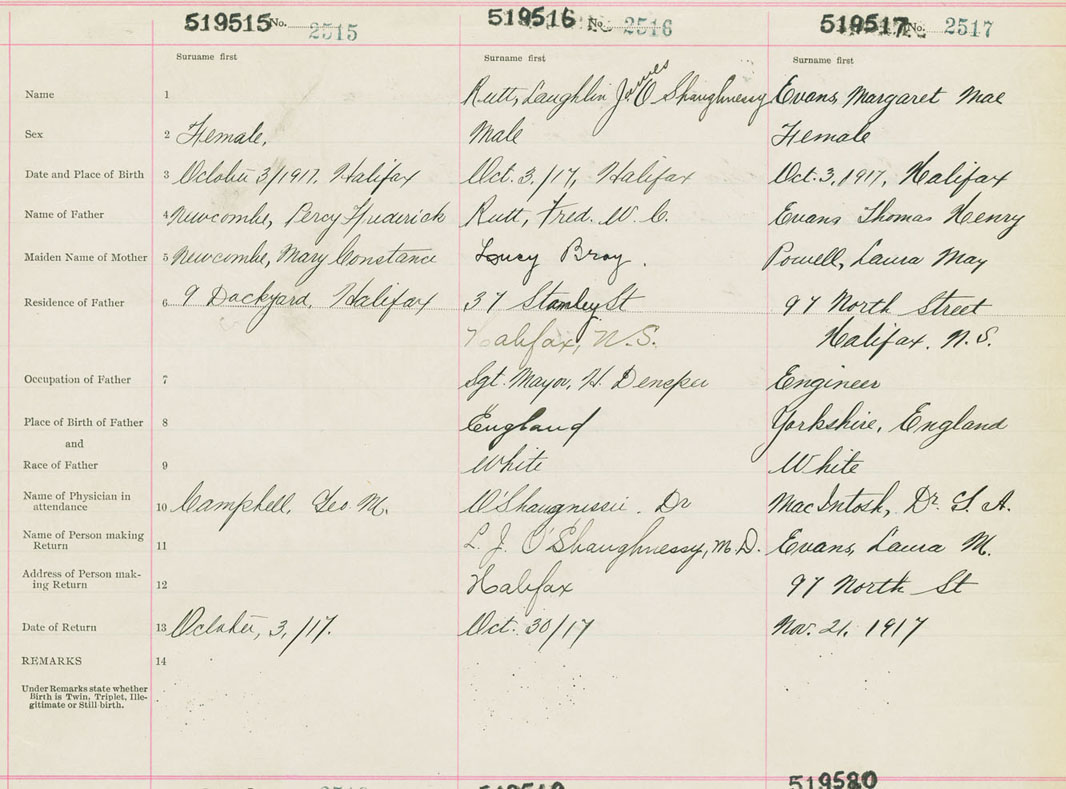 519515 No. 2515 519516 No. 2516 519517 No. 2517
Surname first Surname first Surname first
Name 1 Rutt, Laughlin James O'Shaughnessy Evans, Margaret Mae
Sex 2 Female, Male Female
Date and Place of Birth 3 October 3/1917, Halifax Oct. 3,/17, Halifax Oct. 3, 1917, Halifax
Name of Father 4 Newcombe, Percy Frederick Rutt, Fred. W. C. Evans Thomas Henry
Maiden Name of Mother 5 Newcombe, Mary Constance Lucy Bray. Powell, Laura May
Residence of Father 6 9 Dockyard, Halifax 37 Stanley St 97 North Street
Halifax, N.S. Halifax, N.S.
Occupation of Father 7 Sgt. Mayor, H. Engineer
Place of Birth of Father 8 England Yorkshire, England
and
Race of Father 9 White White
Name of Physician in
attendance 10 Campbell, Geo M. O'Shaugnissii. Dr MacIntosh, Dr. G. A.
Name of Person making
Return 11 L. J. O'Shaughnessy, M.D. Evans, Laura M.
Address of Person mak-
ing Return 12 Halifax 97 North St
Date of Return 13 October, 3,/17. Oct. 30/17 Nov. 21, 1917
REMARKS 14
Under Remarks state whether
Birth is Twin, Triplet, Ille-
gitimate or Still-birth.
519580